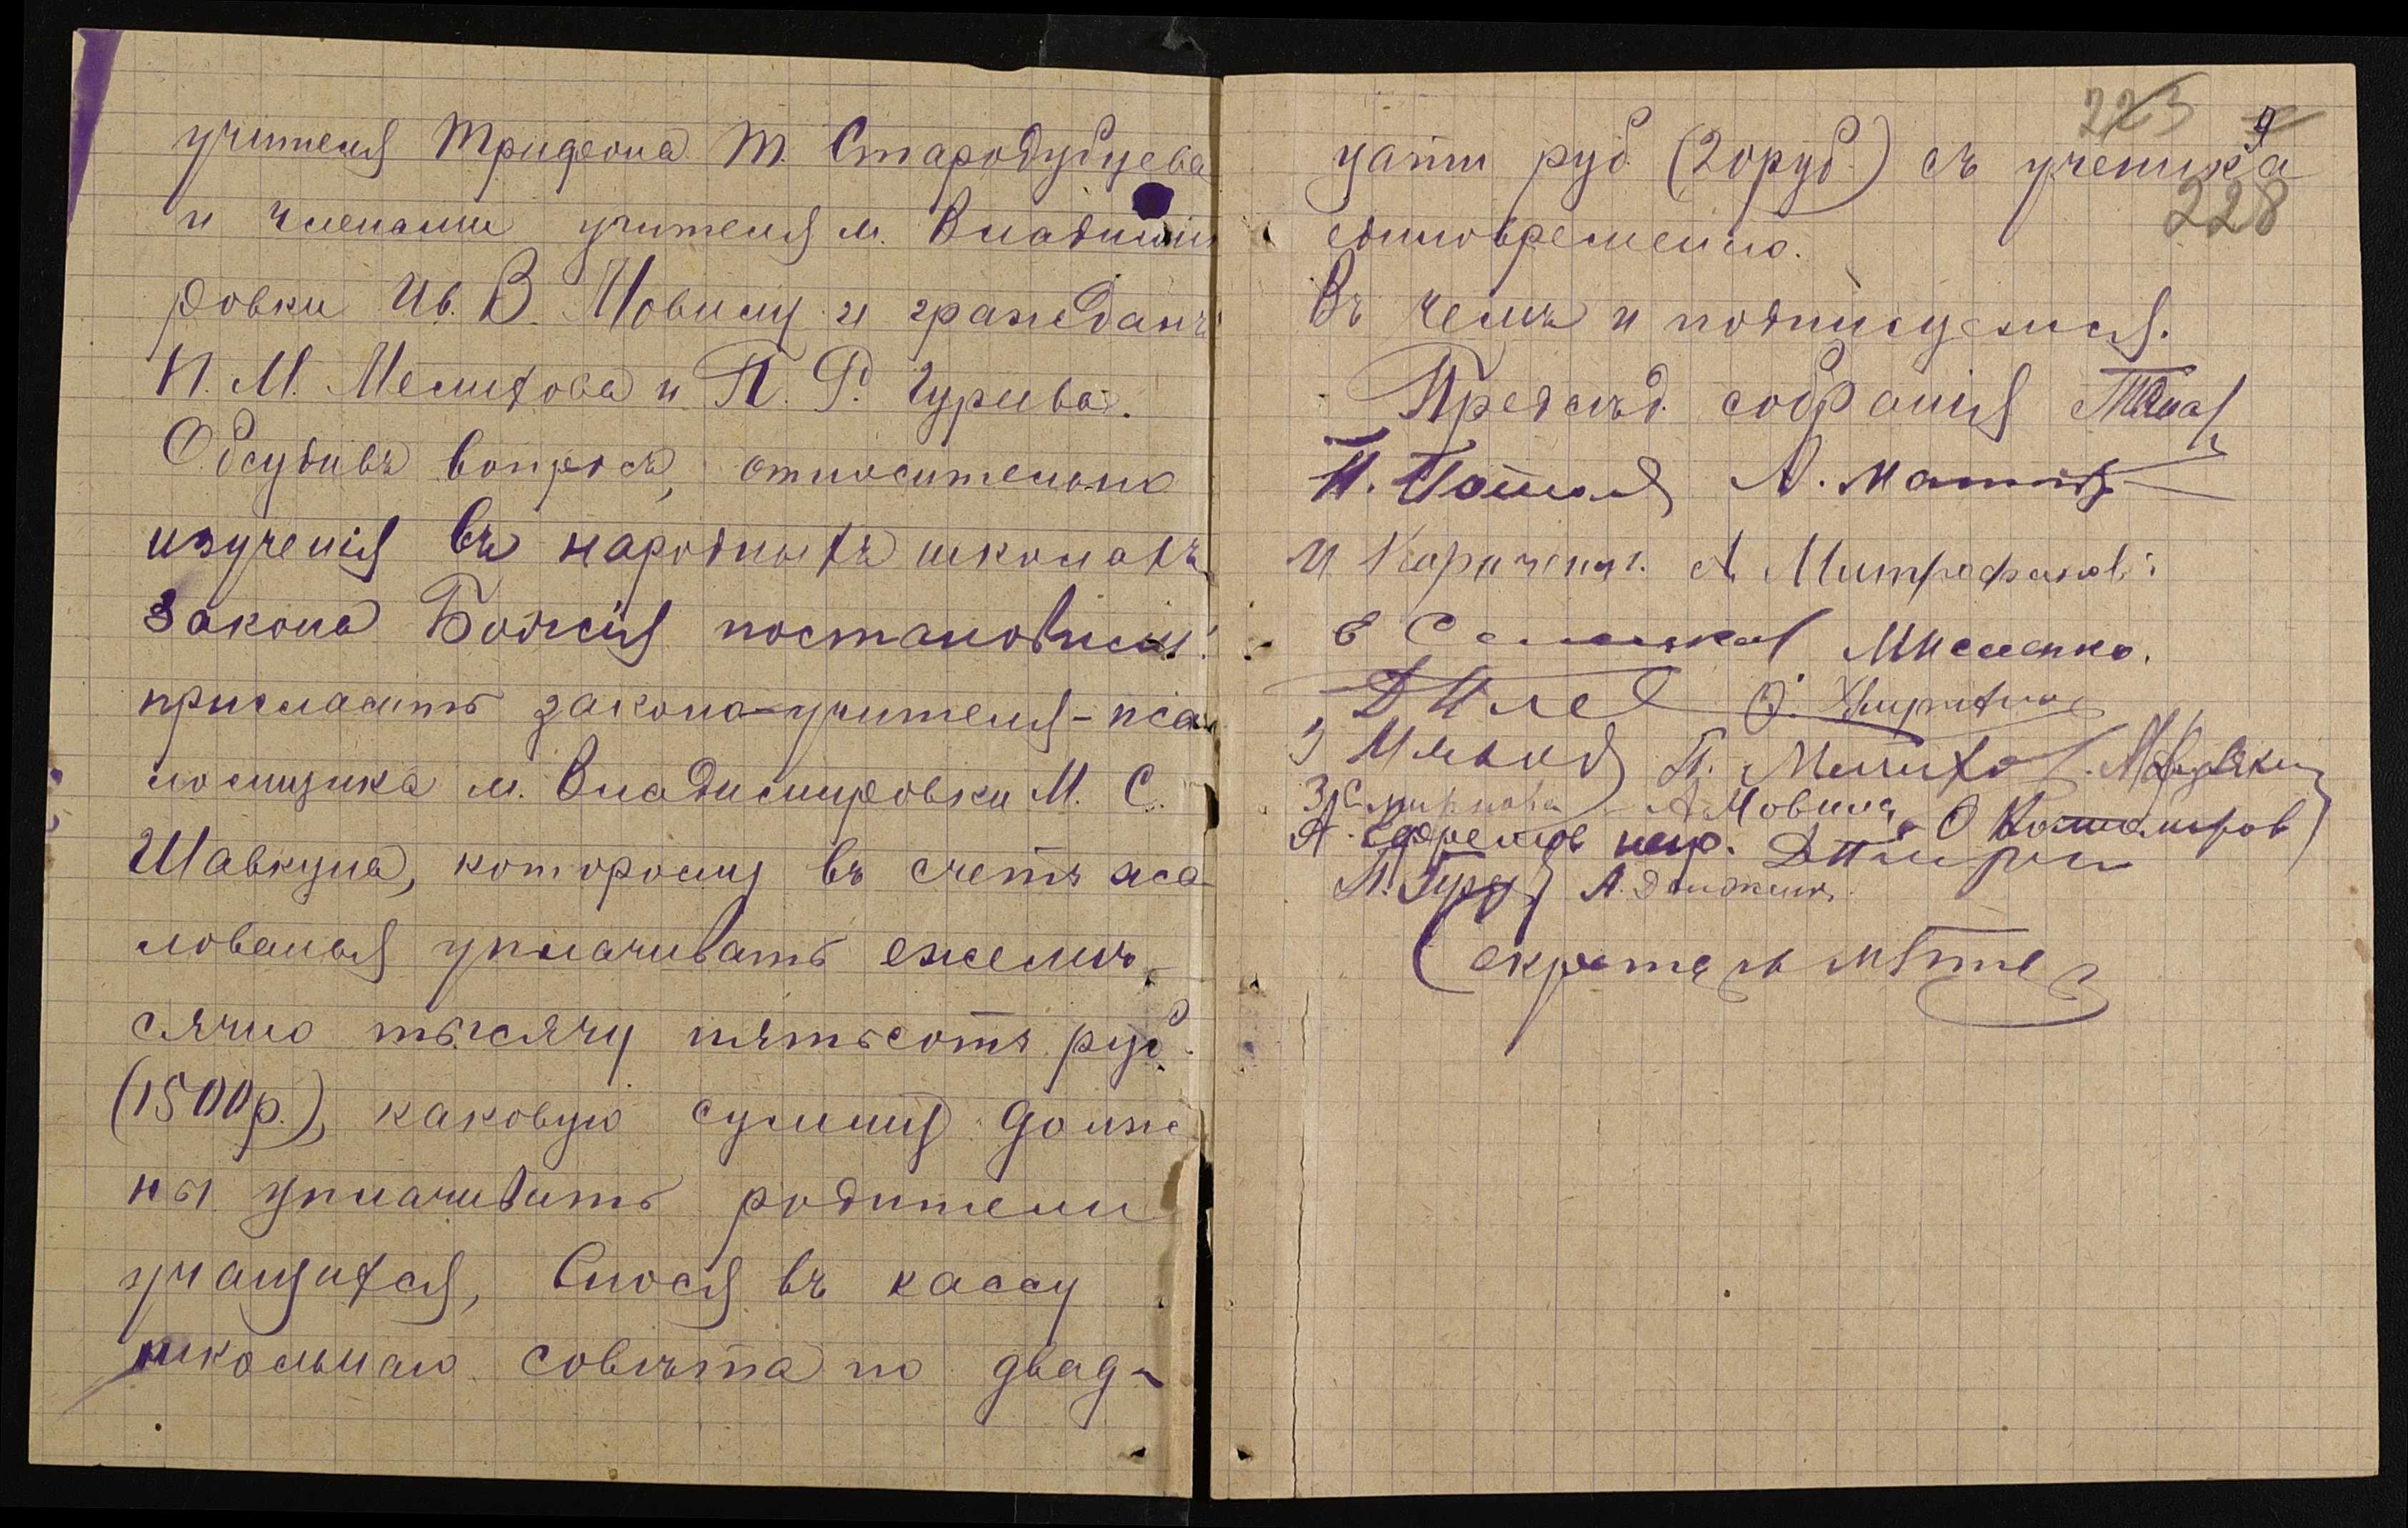 учителя Трифона Т. Стародубцева
и членами учителя м. Владими
ровки Ив. В. Човину и гражданъ
П. М. Мелихова и П. Р. Гуриева.
Обсудивъ вопросъ, относительно
изученія въ народныхъ школахъ
закона Божія постановили:
пригласить закона-учителя - пса
ломщика м. Владимировки М. С.
Шавкуна, которому въ счетъ жа
лованья уплачивать ежемѣ
сячно тысячу пятьсотъ руб.
(1500р.), каковую сумму долж
ны уплачивать родители
учащихся, внося въ кассу
школьнаго совѣта по двад-
цати руб. (20руб.) съ ученика
единовременно.
Въ чемъ и подписуемся.
Предсѣд. собранія
А. Митрофанов
П. Мелихов
З. Смирнова А. Човина
А. Ефремов
Секретарь
223
9
228